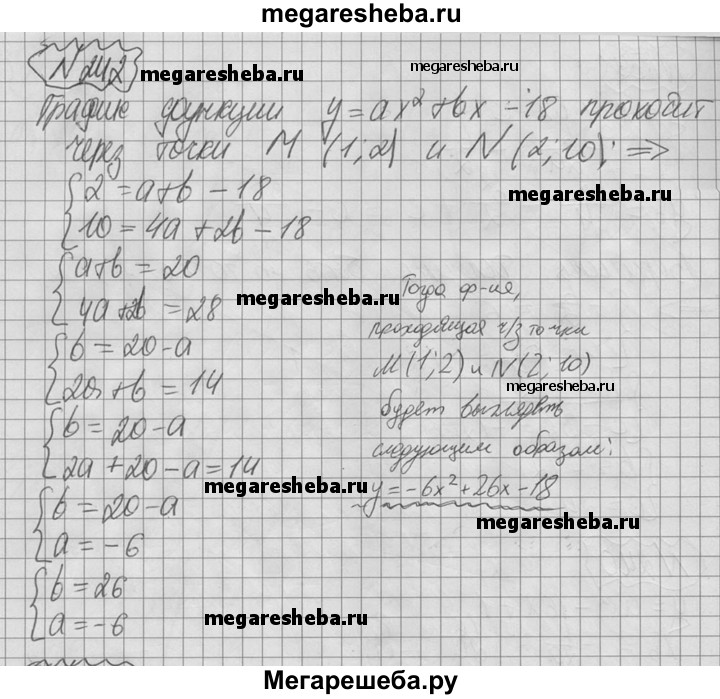 megaresheba.ru
N242
megaresheba.ru
megaresheba.ru
График функции y = ax² + bx - 18 проходит
через точки M (1; 2) и N (2; 10) ⇒
{ 2 = a + b - 18
{ 10 = 4a + 2b - 18
{ a + b = 20
{ 4a + 2b = 28
megaresheba.ru
{ b = 20 - a
{ 2a + b = 14
{ b = 20 - a
{ 2a + 20 - a = 14
megaresheba.ru
{ b = 20 - a
{ a = -6
{ b = 26
{ a = -6
megaresheba.ru
Тогда ф-ия,
проходящая ч/з точки
M (1; 2) и N (2; 10)
megaresheba.ru
будет выглядеть
следующим образом:
y = -6x² + 26x - 18
megaresheba.ru
Мегарешеба.ру